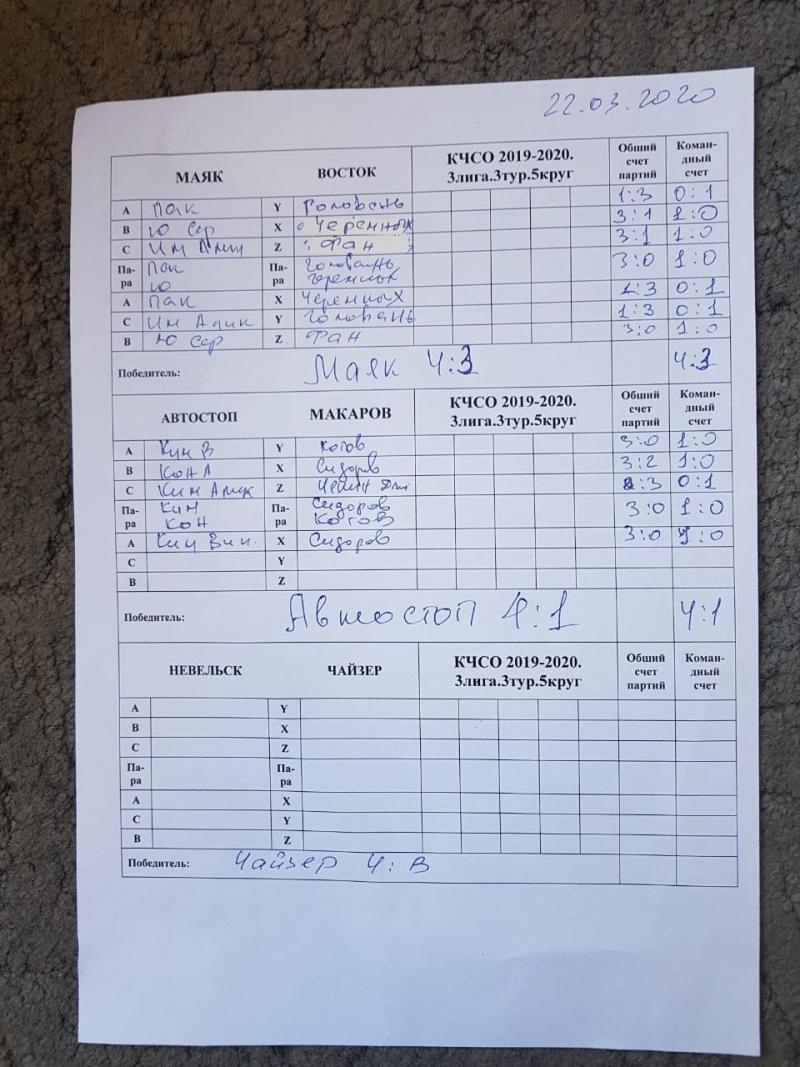 22.03.2020
МАЯК ВОСТОК КЧСО 2019-2020. 3лига.3тур.5круг Общий счет партий Коман-дный счет
А Пак Y Головань 1:3 0:1
В Ю Сер X Черемных 3:1 1:0
С Им Z Фан 3:1 1:0
Па-ра Пак Ю Па-ра Головань Черемных 3:0 1:0
А Пак X Черемных 1:3 0:1
С Им Y Головань 1:3 0:1
В Ю Сер Z Фан 3:0 1:0
Победитель: Маяк 4:3 4:3
АВТОСТОП МАКАРОВ КЧСО 2019-2020. 3лига.3тур.5круг Общий счет партий Коман-дный счет
А Ким В Y Котов 3:0 1:0
В Кон А X Сидоров 3:2 1:0
С Ким Z :3 0:1
Па-ра Ким Кон Па-ра Сидоров Котов 3:0 1:0
А Ким X Сидоров 3:0 1:0
С Y
В Z
Победитель: Автостоп 4:1 4:1
НЕВЕЛЬСК ЧАЙЗЕР КЧСО 2019-2020. 3лига.3тур.5круг Общий счет партий Коман-дный счет
А Y
В X
С Z
Па-ра Па-ра
А X
С Y
В Z
Победитель: Чайзер 4: В